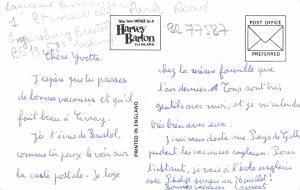 Laurent
1 Stoneswell Park Road
Congresbury Bristol
BS19
Chère Yvette
J'espère que tu passes
de bonnes vacances et qu'il
fait beau à
Je t'écris de Bristol,
comme tu peux le voir sur
la carte postale. Je loge
You see MORE in a
Harvey
Barton
PRINTED IN ENGLAND
BR 77587
POST OFFICE
PREFERRED
chez la même famille que
l'an dernier et Tous sont très
gentils avec moi, et je m'entends
très bien avec eux.
J'irai sans doute au Pays de Galles
pendant les vacances anglaises. Pour
l'instant, je vais à l'école anglaise
avec
Bonnes vacances Laurent